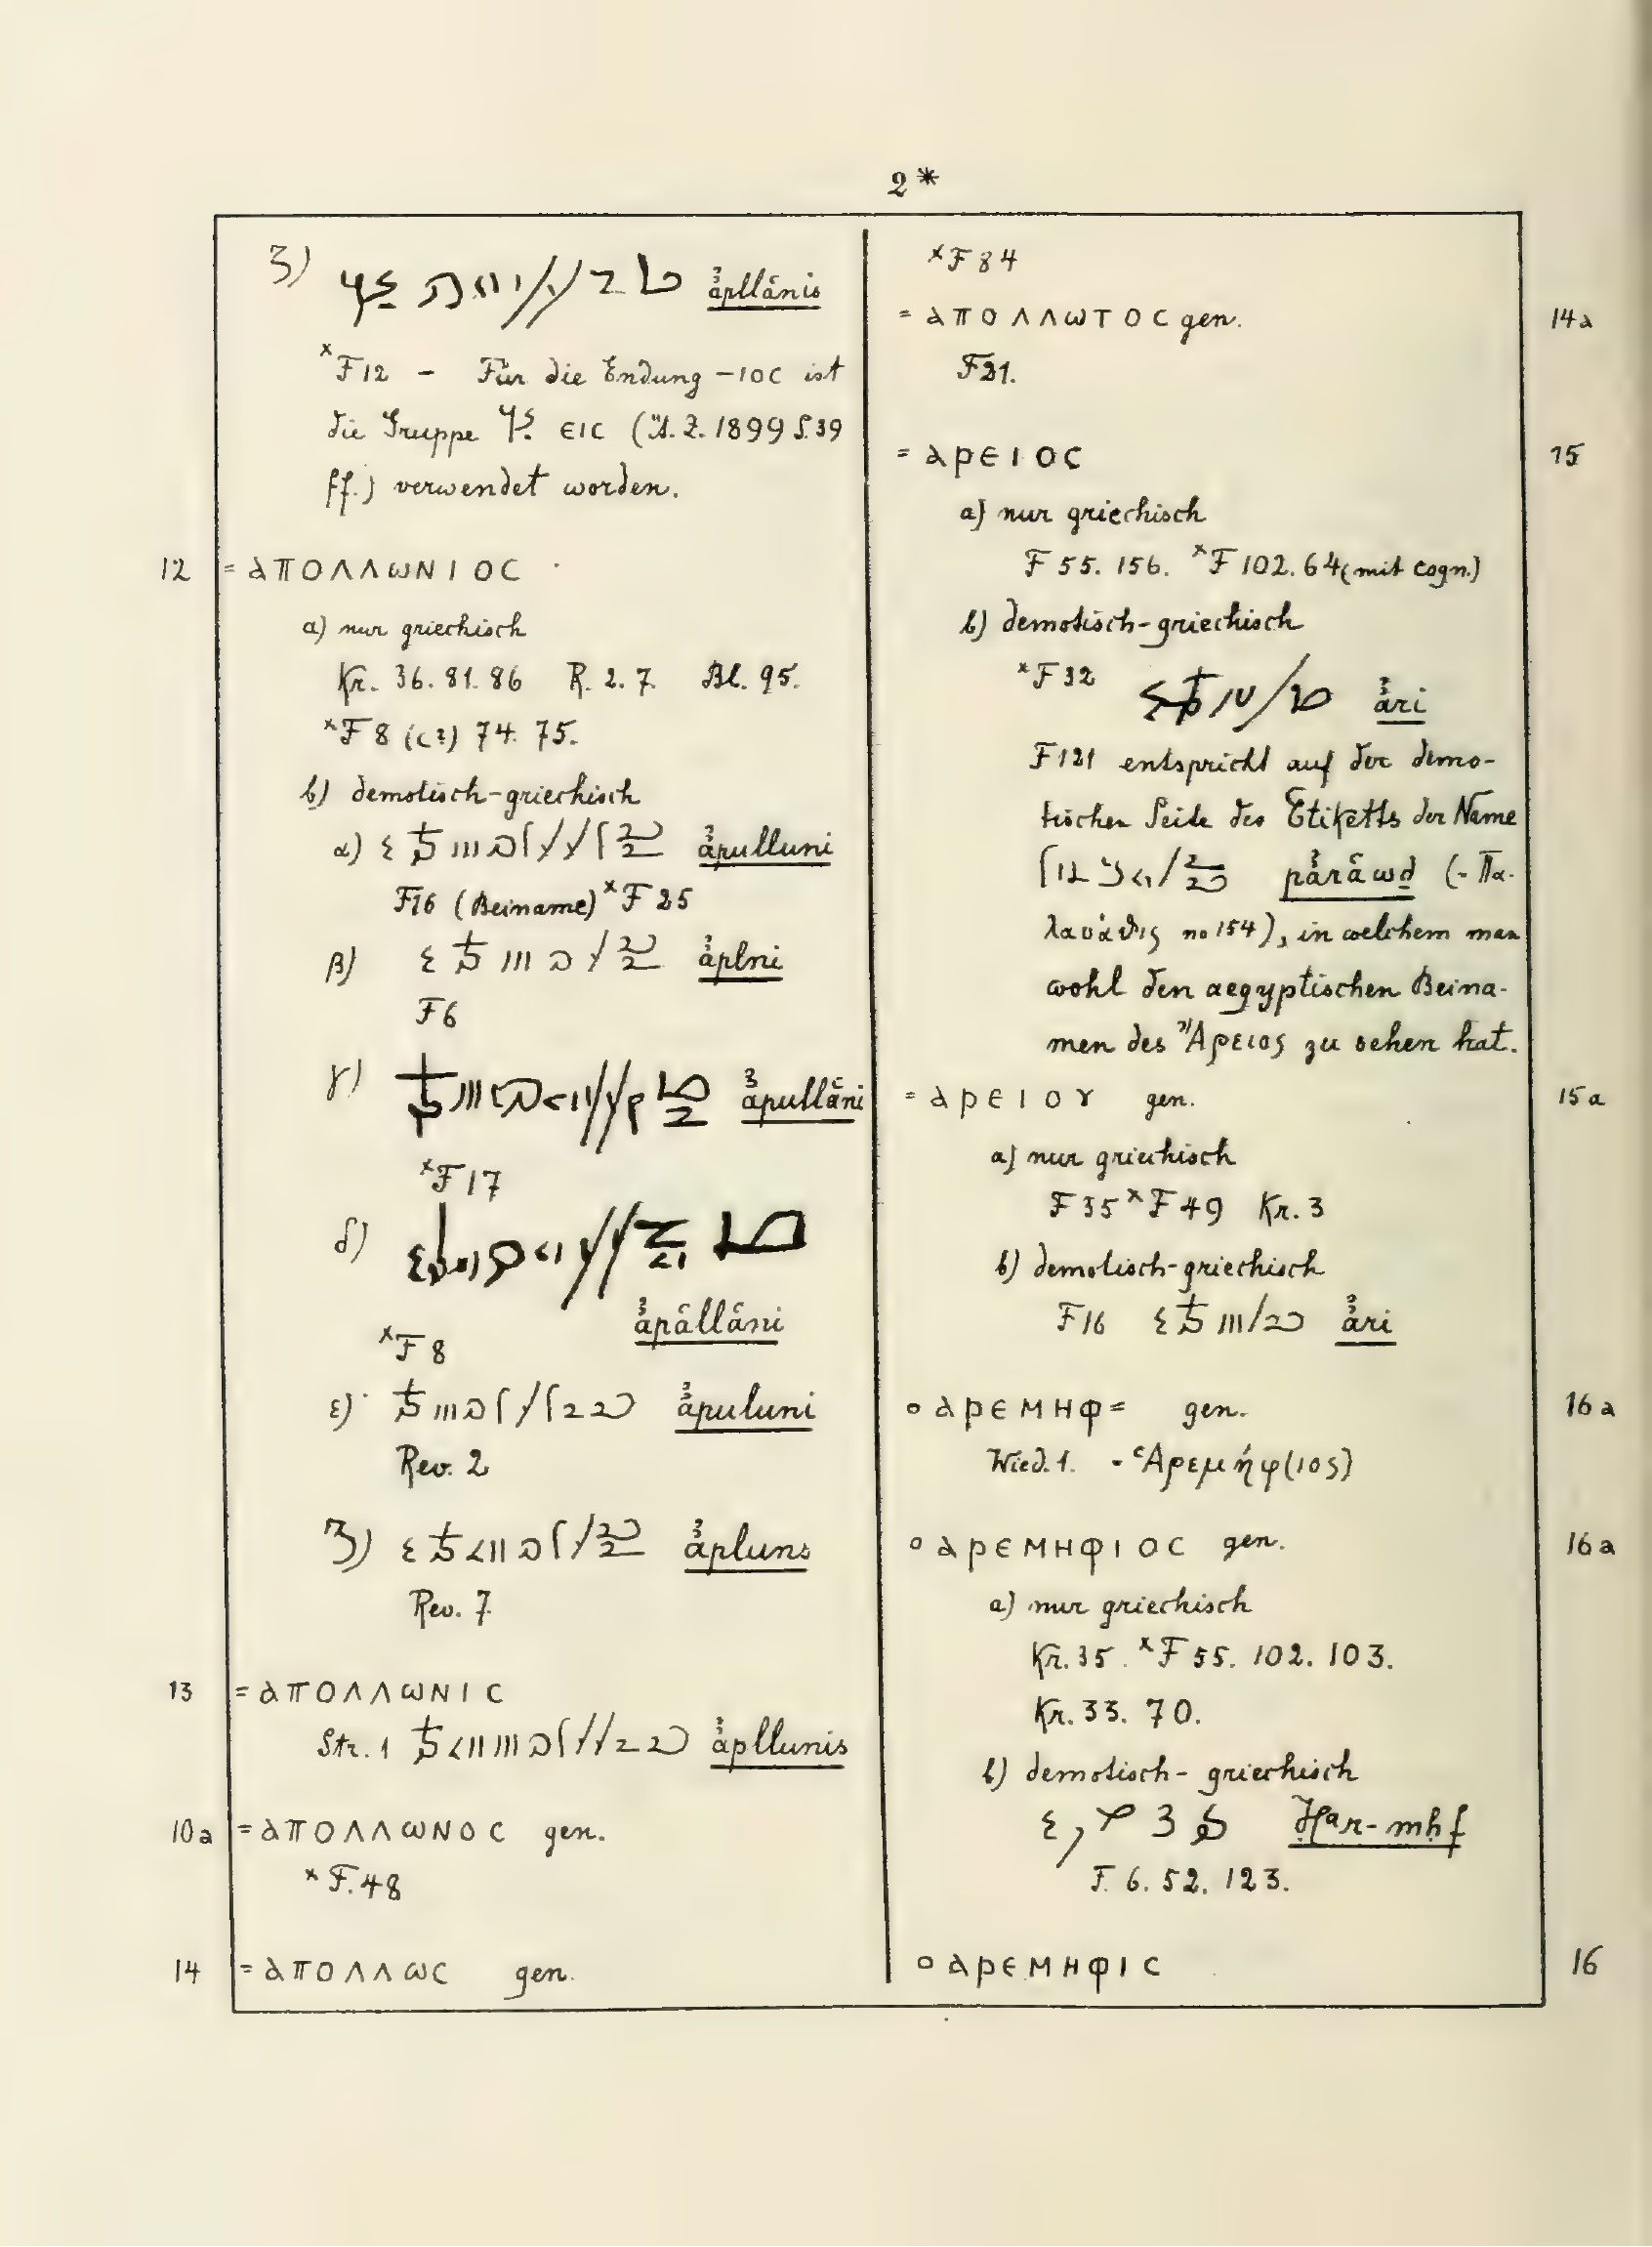 2*
3) ȝ̓pllʿnis
ˣF12 - Für die Endung -ΙΟC ist
die Gruppe ЄΙC (Ä.Z. 1899 S. 39
ff.) verwendet worden.
12 = ΑΠΟΛΛΩΝΙΟC
a) nur griechisch
Kr. 36. 81. 86 R. 2. 7. Bl. 95.
ˣF 8 (c?) 74. 75.
b) demotisch-griechisch
α) ȝ̓pulluni
F16 (Beiname) ˣF 25
β) ȝ̓plni
F6
γ) ȝ̓pullʿni
ˣF 17
δ)
ȝ̓pʿllʿni
ˣF 8
ε) ȝ̓puluni
Rev. 2
3) ȝ̓pluns
Rev. 7
13 = ΑΠΟΛΛΩΝΙC
Str. 1 ȝ̓pllunis
10a = ΑΠΟΛΛΩΝΟC gen.
ˣF. 48
14 = ΑΠΟΛΛΩC gen.
ˣF 84
= ΑΠΟΛΛΩΤΟC gen. 14a
F21.
= ΑΡЄΙΟC 15
a) nur griechisch
F 55. 156. ˣF 102. 64 (mit cogn.)
b) demotisch-griechisch
ˣF 32 ȝ̓ri
F121 entspricht auf der demo-
tischen Seite des Etiketts der Name
(= Πα-
λαυάθις no 154), in welchem man
wohl den aegyptischen Beina-
men des Ἄρειος zu sehen hat.
= ΑΡЄΙΟΥ gen. 15a
a) nur griechisch
F 35 ˣF 49 Kr. 3
b) demotisch-griechisch
F16 ȝ̓ri
o ΑΡЄΜΗΦ= gen. 16a
Wied. 1. = Ἁρεμήφ(ιος)
o ΑΡЄΜΗΦΙΟC gen. 16a
a) nur griechisch
Kr. 35. ˣF 55. 102. 103.
Kr. 33. 70.
b) demotisch-griechisch
Ḥar-mḥf
F. 6. 52. 123.
o ΑΡЄΜΗΦΙC 16